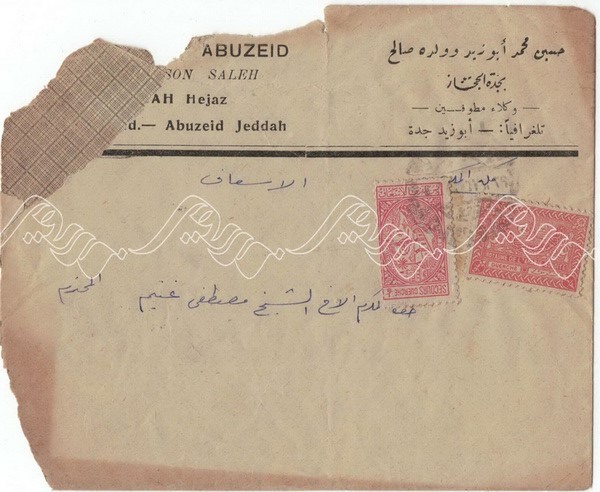 ABUZEID
SON SALEH
AH Hejaz
d.— Abuzeid Jeddah
حسين محمد أبو زيد وولده صالح
بجدة الحجاز
— وكلاء مطوفين —
تلغرافياً: — أبو زيد جدة
الاسعاف
حضرة المكرم الاخ الشيخ مصطفى غنيم المحترم
SECOURS GUERCHE